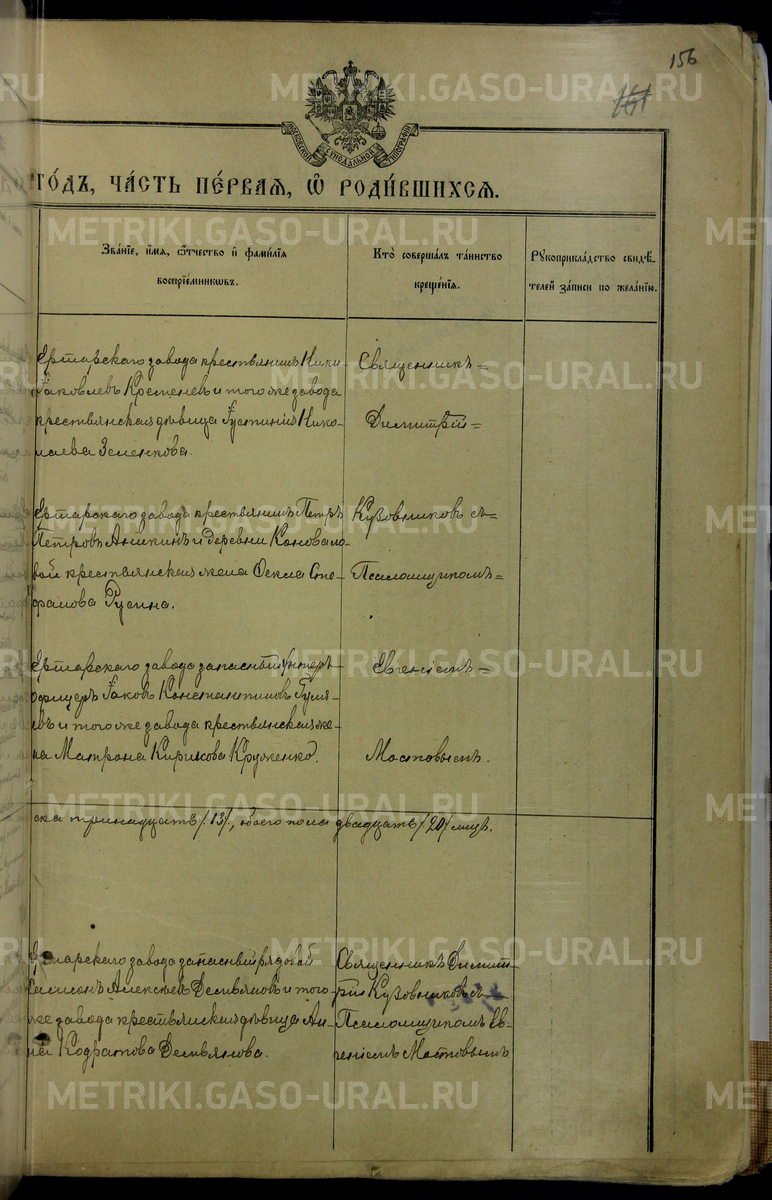 156
161
МОСКОВСКОЙ СѴНОДАЛЬНОЙ ТИПОГРАФІИ
ГО́ДЪ, ЧА́СТЬ ПЕ́РВАѦ, Ѽ РОДИ́ВШИХСѦ.
Зва́нїе, и҆́мѧ, ѻ҆́тчество и҆ фами́лїѧ
воспрїе́мникѡвъ.
Кто̀ соверша́лъ та́инство
креще́нїѧ.
Рꙋкоприкла́дство свидѣ́-
телей за́писи по жела́нїю.
Ертарскаго завода крестьянинъ Ники-
Іаковлевъ Кременев и того же завода
крестьянская дѣвица Іустинія Нико-
лаева Зеленкова.
Священникъ=
Димитрій=
Ертарскаго завода крестьянинъ Петръ
Петровъ Аникинъ и деревни Коновало-
вой крестьянская жена Ѳекла Сте-
фанова Русина.
Кузовников съ=
Псаломщикомъ=
Ертарскаго завода запасный унтеръ
офицеръ Іаковъ Константинов Гуля-
евъ и того же завода крестьянская же-
на Матрона Кирикова Круженко.
Евгеніемъ=
Мостовымъ.
ска тринадцать /13/, обоего пола двадцать /20/ лицъ.
Ертарскаго завода запасный рядовой
Самсонъ Алексѣев Демьянов и того-
же завода крестьянская дѣвица Ан-
на Кодратова Демьянова.
Священникъ Димит-
рій Кузовников съ
Псаломщиком Ев-
геніемъ Мостовымъ
METRIKI.GASO-URAL.RU